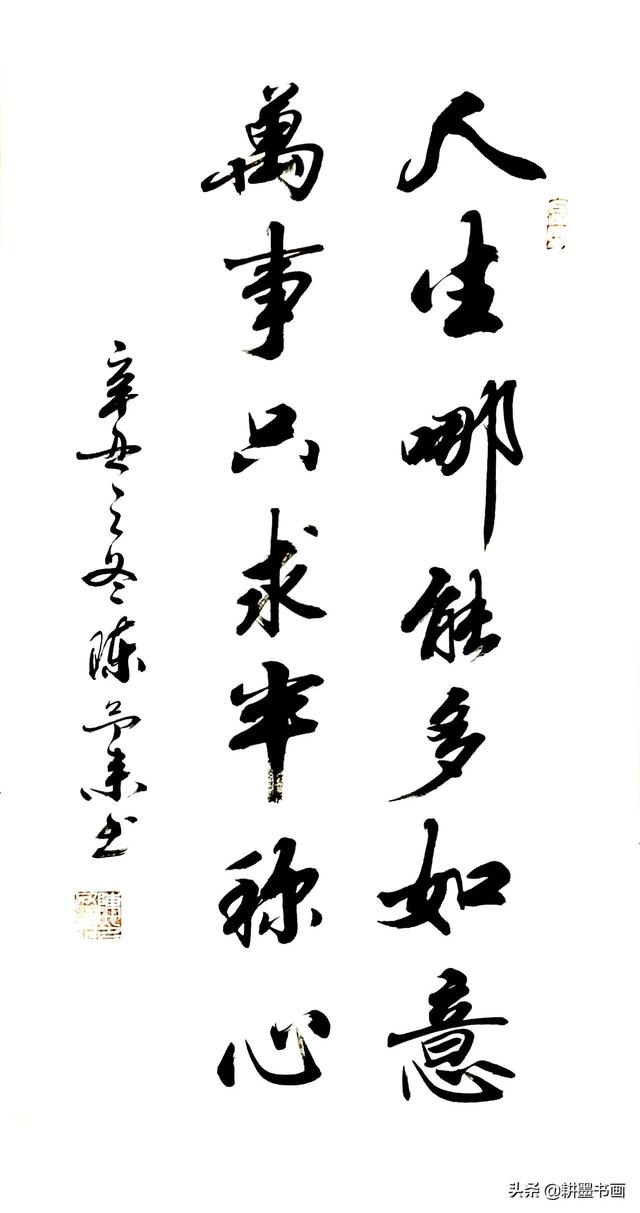 人生哪能多如意
萬事只求半称心
辛丑之冬陈书
头条 @耕墨书画